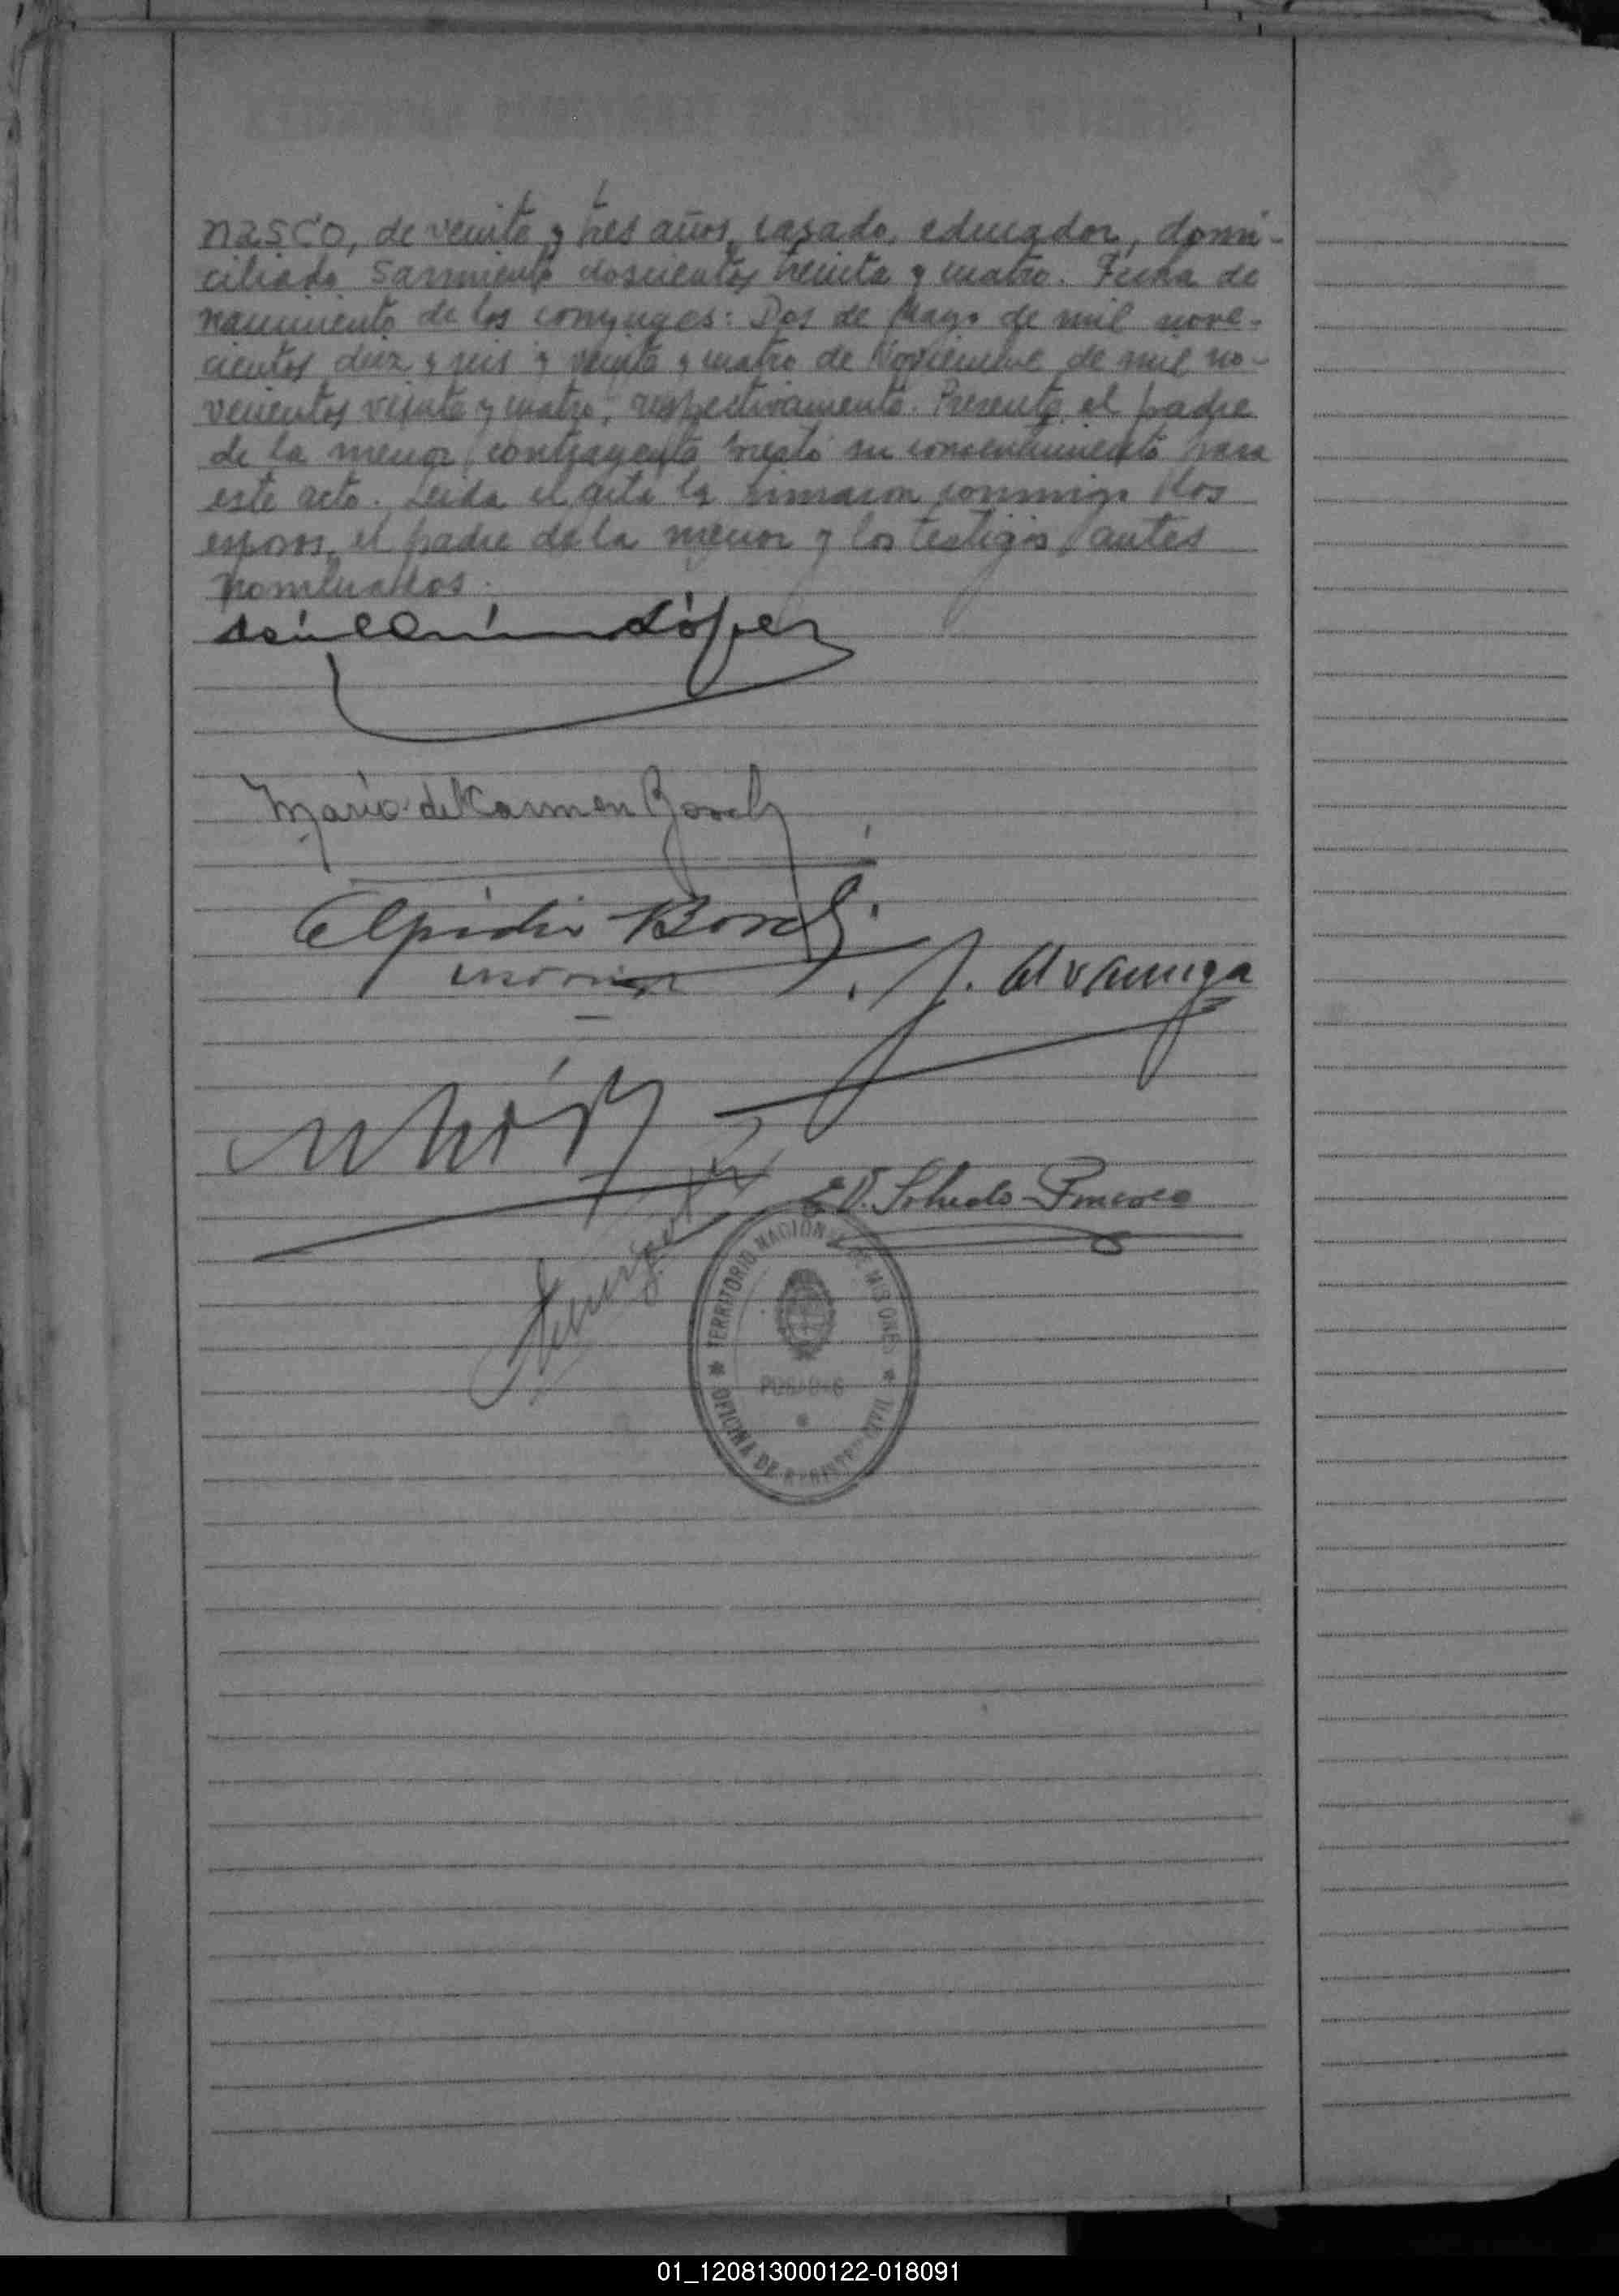 nasco, de veinte y tres años, casado, educador, domi-
ciliado Sarmiento doscientos treinta y cuatro. Fecha de
nacimiento de los conyuges: Dos de Mayo de mil nove-
cientos diez y seis y veinte y cuatro de Noviembre de mil no-
vecientos veinte y cuatro, respectivamente. Presente el padre
de la menor contrayente prestó su consentimiento para
este acto. Leida el acta la firmaron conmigo los
esposos, el padre de la menor y los testigos antes
nombrados.
López
Maria del Carmen Bosch
Elpidio Bosch
J. Alvarenga
E.V. Toledo
TERRITORIO NACIONAL DE MISIONES
POSADAS
OFICINA DE REGISTRO CIVIL
01_120813000122-018091